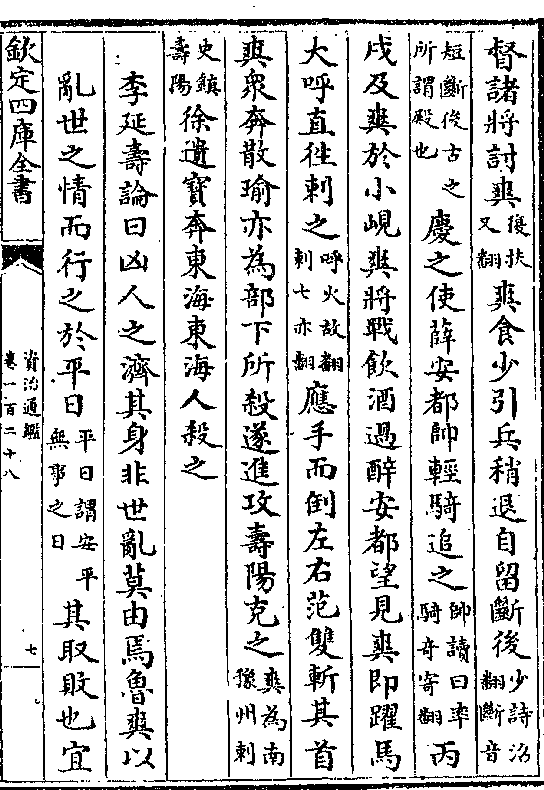 督諸將討爽復扶又翻爽食少引兵稍退自留斷後少詩沼翻斷音
短斷後古之所謂殿也慶之使薛安都帥輕騎追之帥讀曰率騎奇寄翻丙
戌及爽於小峴爽將戰飲酒過醉安都望見爽即躍馬
大呼直往刺之呼火故翻刺七亦翻應手而倒左右范雙斬其首
爽衆奔散瑜亦為部下所殺遂進攻壽陽克之爽為南豫州刺
史鎮壽陽徐遺寶奔東海東海人殺之
李延壽論曰凶人之濟其身非世亂莫由焉魯爽以
亂世之情而行之於平日平日謂安平無事之日其取敗也宜
欽定四庫全書
資治通鑑
卷一百二十八
七